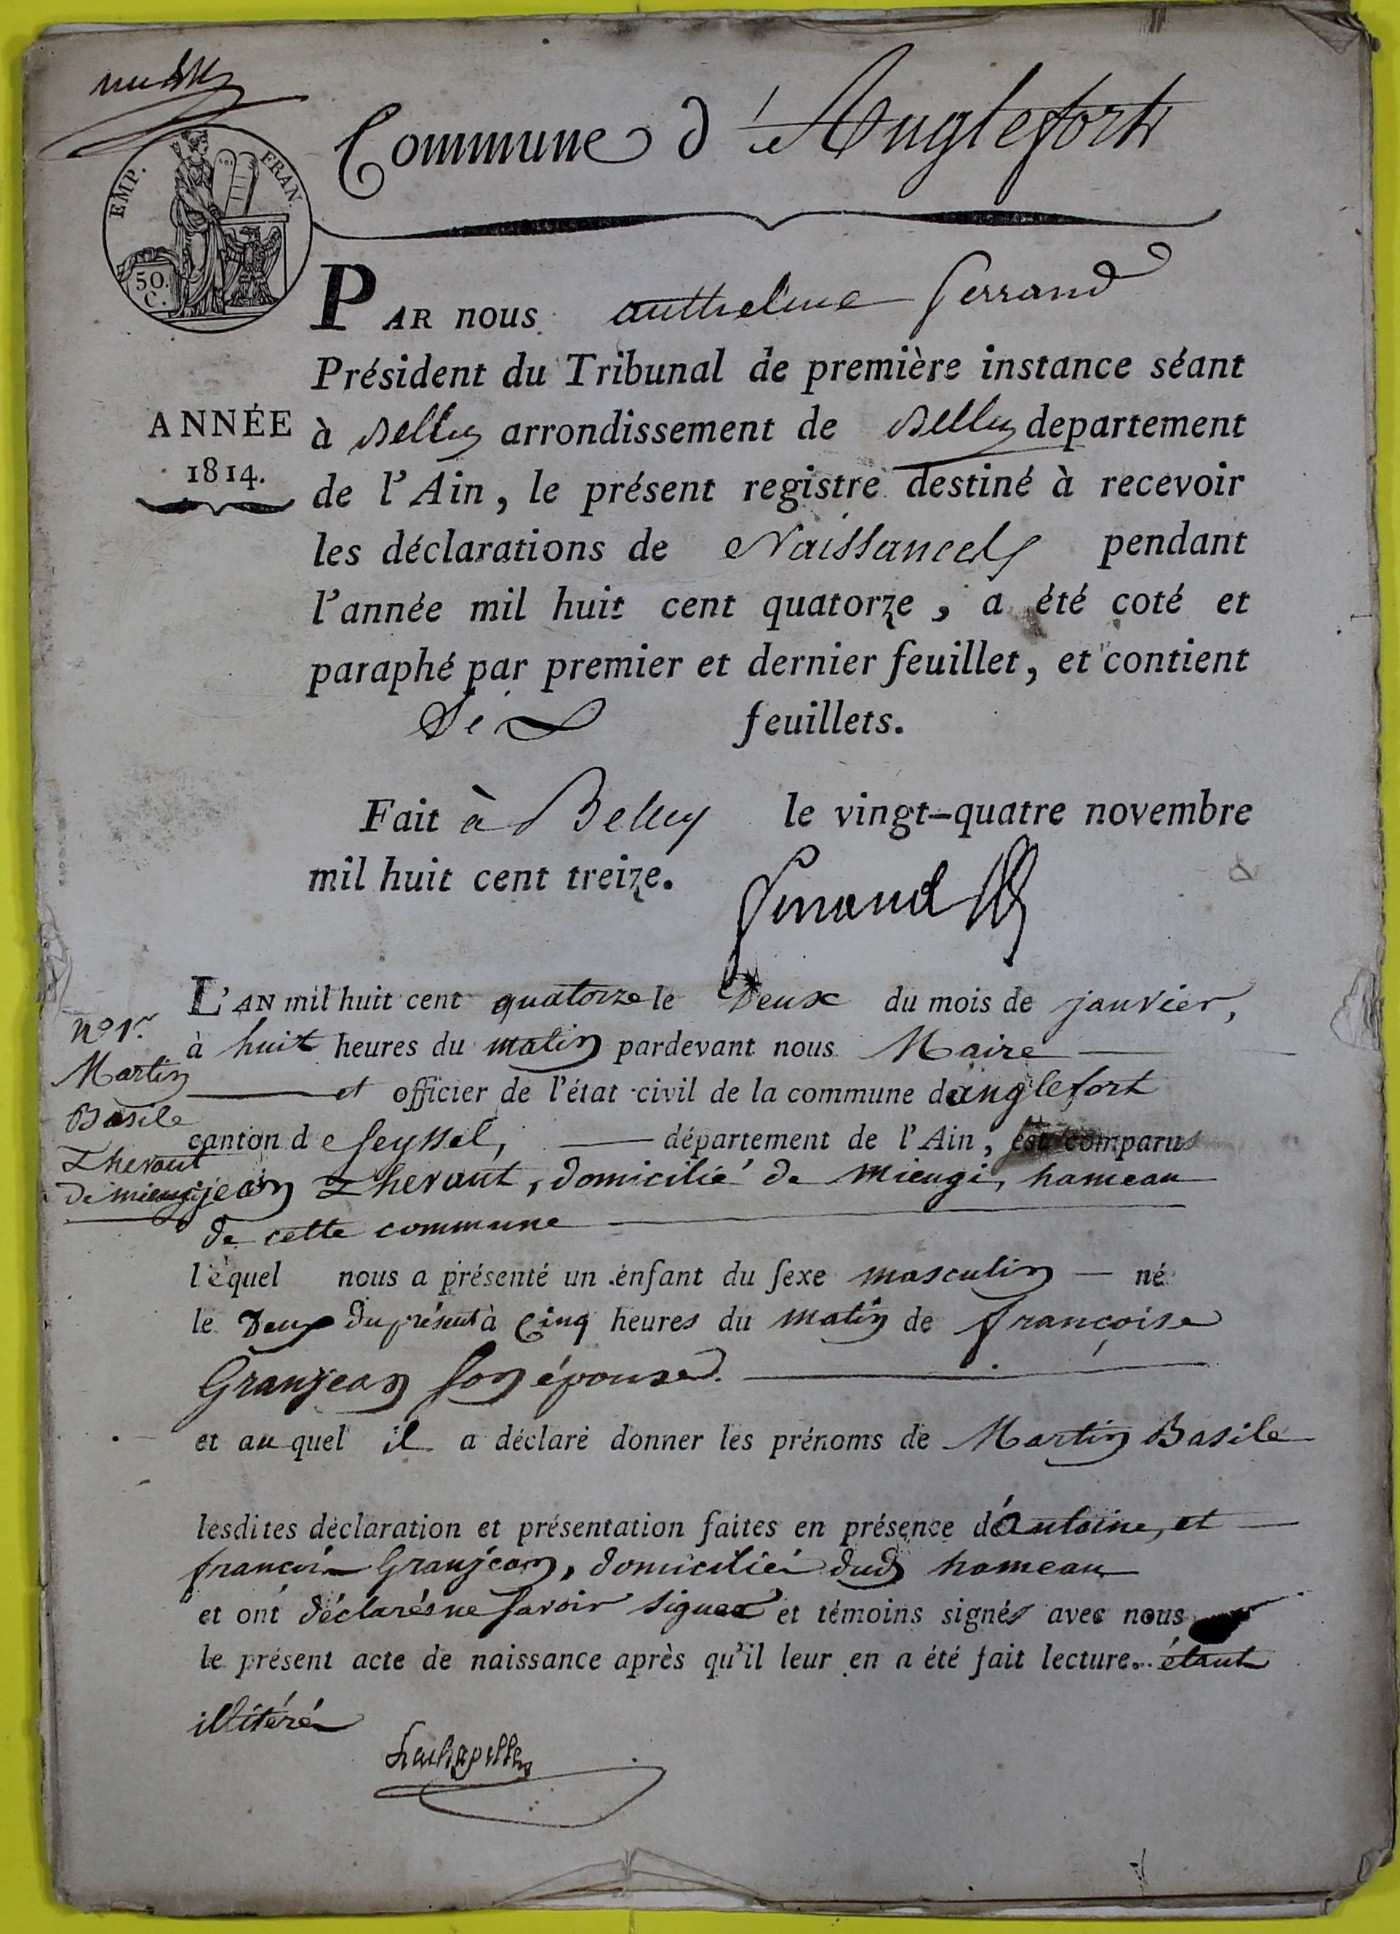 Commune d'Anglefort
EMP. FRAN.
50.
C.
PAR nous Anthelme Ferrand
Président du Tribunal de première instance séant
ANNÉE
1814.
à Belley arrondissement de Belley departement
de l'Ain, le présent registre destiné à recevoir
les déclarations de Naissances pendant
l'année mil huit cent quatorze, a été coté et
paraphé par premier et dernier feuillet, et contient
Six feuillets.
Fait à Belley le vingt-quatre novembre
mil huit cent treize.
Ferrand
L'AN mil huit cent quatorze le Deux du mois de janvier,
à huit heures du matin pardevant nous Maire
et officier de l'état civil de la commune danglefort
canton de Seyssel, département de l'Ain, est comparu
jean Thevant, domicilié de mieugi, hameau
de cette commune
lequel nous a présenté un enfant du sexe masculin né
le Deux du présent à Cinq heures du matin de françoise
Granjean son épouse.
et au quel il a déclaré donner les prénoms de Martin Basile
lesdites déclaration et présentation faites en présence d'Antoine, et
françois Granjean, domiciliés dud hameau
et ont déclarés ne savoir signer et témoins signés avec nous
le présent acte de naissance après qu'il leur en a été fait lecture. étant
illitérés
Lachapelle
No 1er
Martin
Basile
Thevant
de mieugi